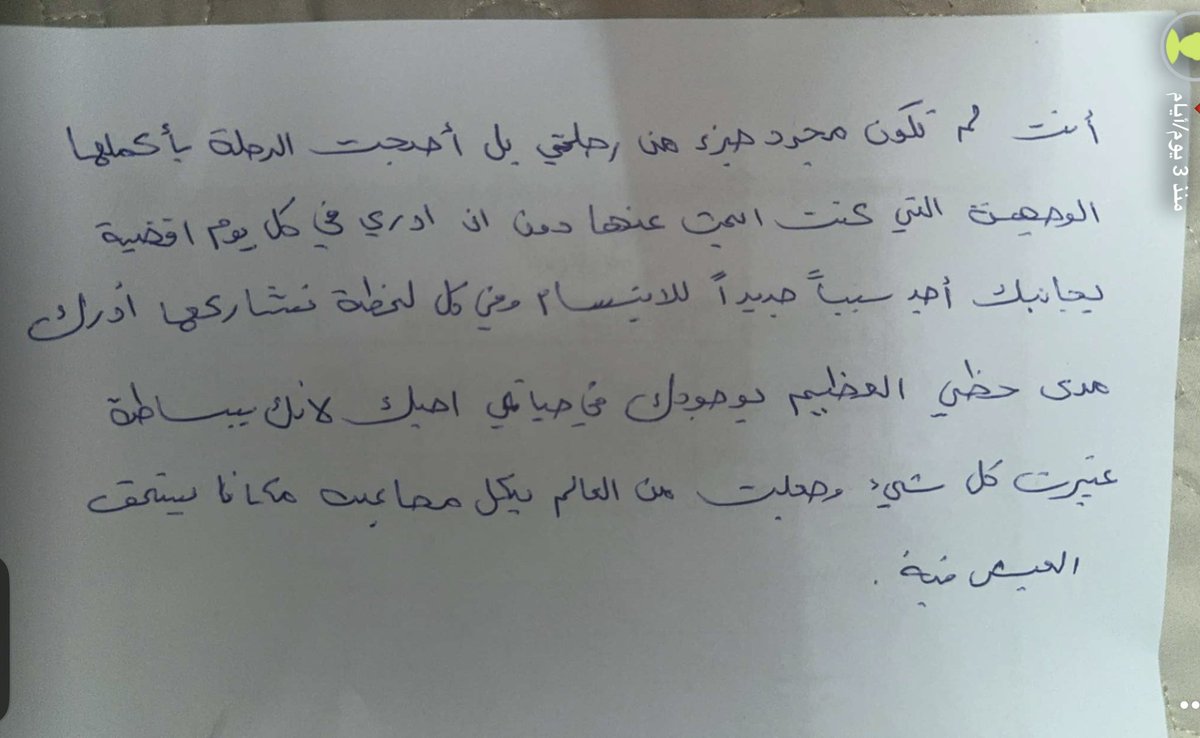 أنت لم تكون مجرد جزء من رحلتي بل أصبحت الرحلة بأكملها
الوجهة التي كنت ابحث عنها دون ان ادري في كل يوم اقضية
بجانبك أجد سبباً جديداً للابتسام وفي كل لحظة نتشاركها أدرك
مدى حظي العظيم بوجودك في حياتي احبك لانك ببساطة
غيرت كل شيء وجعلت من العالم بكل مصاعبه مكانا يستحق
العيش فية .
منذ 3 يوم/أيام